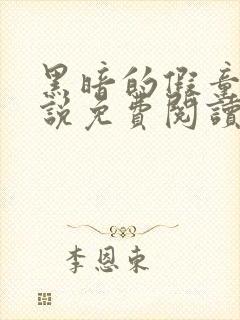 黑暗的假童
說免費閱讀
李恩東